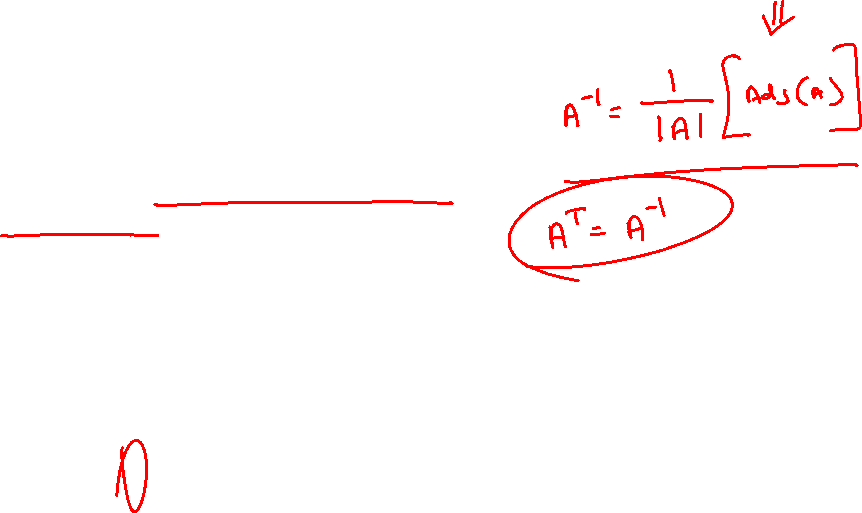 A⁻¹ = 1/|A| [Adj(A)]
Aᵀ = A⁻¹